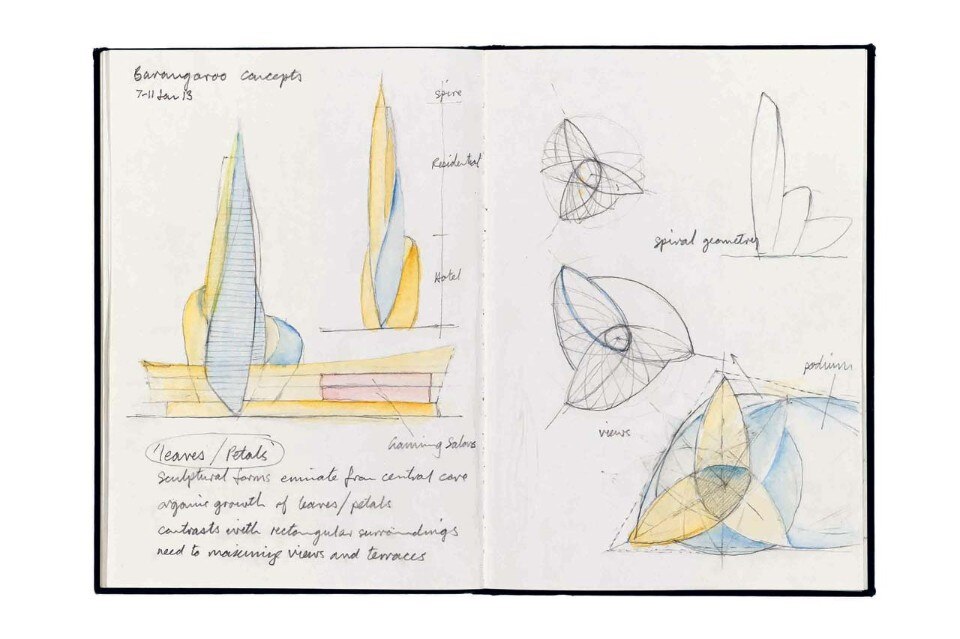 Barangaroo Concepts
7-11 Jan 13
spire
Residential
Hotel
Gaming Salons
'leaves / Petals'
Sculptural forms eminate from central core
organic growth of leaves/petals
contrasts with rectangular surroundings
need to maximise views and terraces
spiral geometry
views
podium